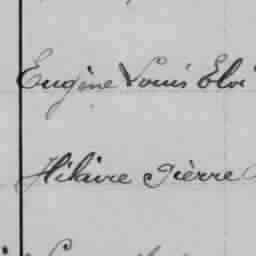 Eugène Louis Eloi
Hilaire Pierre